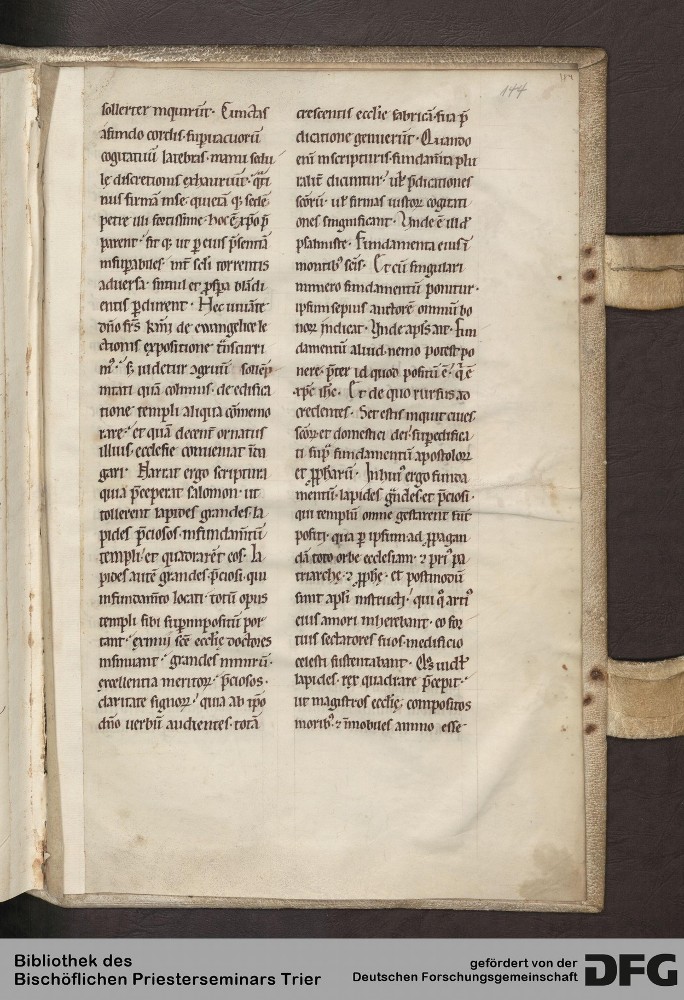 144
sollerter inquirūt. Cunctas
afundo cordis. supuacuorū
cogitatiuū latebras. manu sedu
lę discretionis exhauriūt. q̄ti
nus firmā inse. quietā q; sedē
petre illi fortissime. hoc ē xp̄o p̄
parent. sit q; ut p eius p̄sentiā
insupabiles. int̄ scl̄i torrentis
aduersa. simul et pspa blādi
entis pdurent. Hec uniāte
dn̄o frs̄ kmi de ewangelice le
ctionis expositione t̄nscurri
m'. s; uidetur
nitati quā colimus. de edifica
tione templi aliqua cōmemo
rare. et quā decent ornatus
illius. ecclesie conueniat īda
gari. Narrat ergo scriptura
quia p̄ceperat salomon. ut
tollerent lapides grandes. la
pides p̄ciosos. infundam̄tū
templi. et quadrarēt eos. la
pides autē grandes. p̄ciosi. qui
infundam̄to locati. totū opus
templi sibi suppositū por
tant. eximij sc̄e eccl̄ie doctores
insinuant. grandes
excellentia meritoꝝ. p̄ciosos.
claritate signoꝝ. quia ab ip̄o
dn̄o uerbū audientes. totā
crescentis eccl̄ie fabricā. sua p̄
dicatione genuerūt. Quando
eni inscripturis. fundam̄ta plu
ralit̄ dicuntur. ul' p̄dicationes
sc̄orū. ul' firmas iustoꝝ cogitati
ones significant. Unde ē illd'
psalmiste. Fundamenta eius ī
montib' sc̄is. Et cū singulari
numero fundamentū ponitur.
ipsum sepius auctorē omniū bo
noꝝ indicat. Unde apls̄ ait. Fun
damentū aliud. nemo potest po
nere. p̄ter id quod positū ē. q̄ ē
xp̄c ihc̄. Et de quo rursus ad
credentes. Set estis inquit ciues
sc̄oꝝ et domestici dei. supedifica
ti sup̄ fundamentū apostoloꝝ
et pphārū. Inhui' ergo funda
mentū. lapides gn̄des. et p̄ciosi.
qui templū omne gestarent sūt
positi. quia p ipsum ad ppagan
dā toto orbe ecclesiam. ⁊ pri' pa
triarchę. ⁊ pphę. et postmodū
sunt apl̄i instructi. qui q̊ arti'
eius amori inherebant. eo for
tius sectatores suos. inedificio
celesti sustentabant. Qs̄ uidl'
lapides. rex quadrare p̄cepit.
ut magistros eccl̄ię. compositos
morib'. ⁊ īmobiles animo esse
Bibliothek des
Bischöflichen Priesterseminars Trier
gefördert von der
Deutschen Forschungsgemeinschaft
DFG